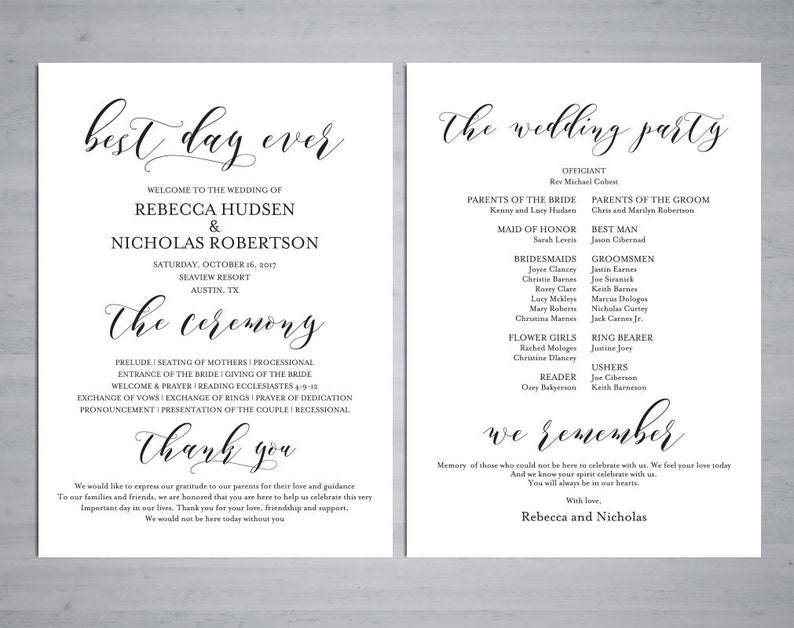 best day ever
WELCOME TO THE WEDDING OF
REBECCA HUDSEN
&
NICHOLAS ROBERTSON
SATURDAY, OCTOBER 16, 2017
SEAVIEW RESORT
AUSTIN, TX
the ceremony
PRELUDE | SEATING OF MOTHERS | PROCESSIONAL
ENTRANCE OF THE BRIDE | GIVING OF THE BRIDE
WELCOME & PRAYER | READING ECCLESIASTES 4:9-12
EXCHANGE OF VOWS | EXCHANGE OF RINGS | PRAYER OF DEDICATION
PRONOUNCEMENT | PRESENTATION OF THE COUPLE | RECESSIONAL
thank you
We would like to express our gratitude to our parents for their love and guidance
To our families and friends, we are honored that you are here to help us celebrate this very
Important day in our lives. Thank you for your love, friendship and support.
We would not be here today without you
the wedding party
OFFICIANT
Rev Michael Cobest
PARENTS OF THE BRIDE
Kenny and Lucy Hudsen
MAID OF HONOR
Sarah Leveis
BRIDESMAIDS
Joyce Clancey
Christie Barnes
Rozey Clare
Lucy Mckleys
Mary Roberts
Christina Marnes
FLOWER GIRLS
Rached Mologes
Christine Dlancey
READER
Ozey Bakyerson
PARENTS OF THE GROOM
Chris and Marilyn Robertson
BEST MAN
Jason Cibernad
GROOMSMEN
Jastin Earnes
Joe Siranick
Keith Barnes
Marcus Dologos
Nicholas Curtey
Jack Carnes Jr.
RING BEARER
Justine Joey
USHERS
Joe Ciberson
Keith Barneson
we remember
Memory of those who could not be here to celebrate with us. We feel your love today
And we know your spirit celebrate with us.
You will always be in our hearts.
With love,
Rebecca and Nicholas